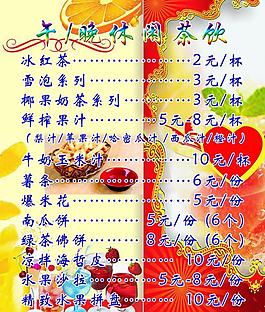 午/晚休闲茶饮
冰红茶············2元/杯
雪泡系列············3元/杯
椰果奶茶系列······3元/杯
鲜榨果汁······5元-8元/杯
(梨汁/苹果汁/哈密瓜汁/西瓜汁/橙汁)
牛奶玉米汁·········10元/杯
薯条···············6元/份
爆米花············5元/份
南瓜饼·········5元/份(6个)
绿茶佛饼······8元/份(6个)
凉拌海哲皮·········10元/份
水果沙拉······5元-8元/份
精致水果拼盘······10元/份